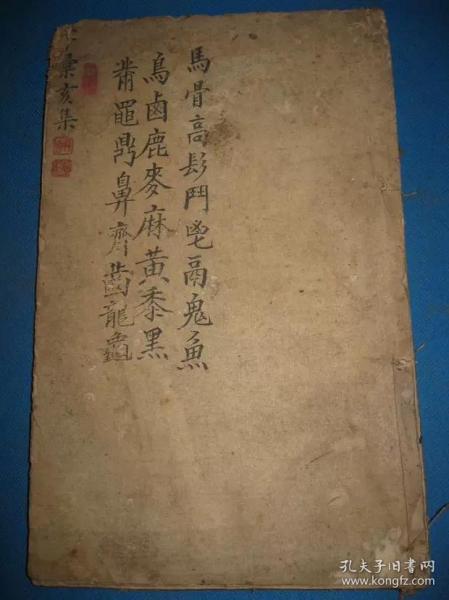 馬骨高髟鬥鬯鬲鬼魚
鳥鹵鹿麥麻黃黍黑
黹黽鼎鼻齊齒龍龜
彙亥集
孔夫子旧书网
www.kongfz.com